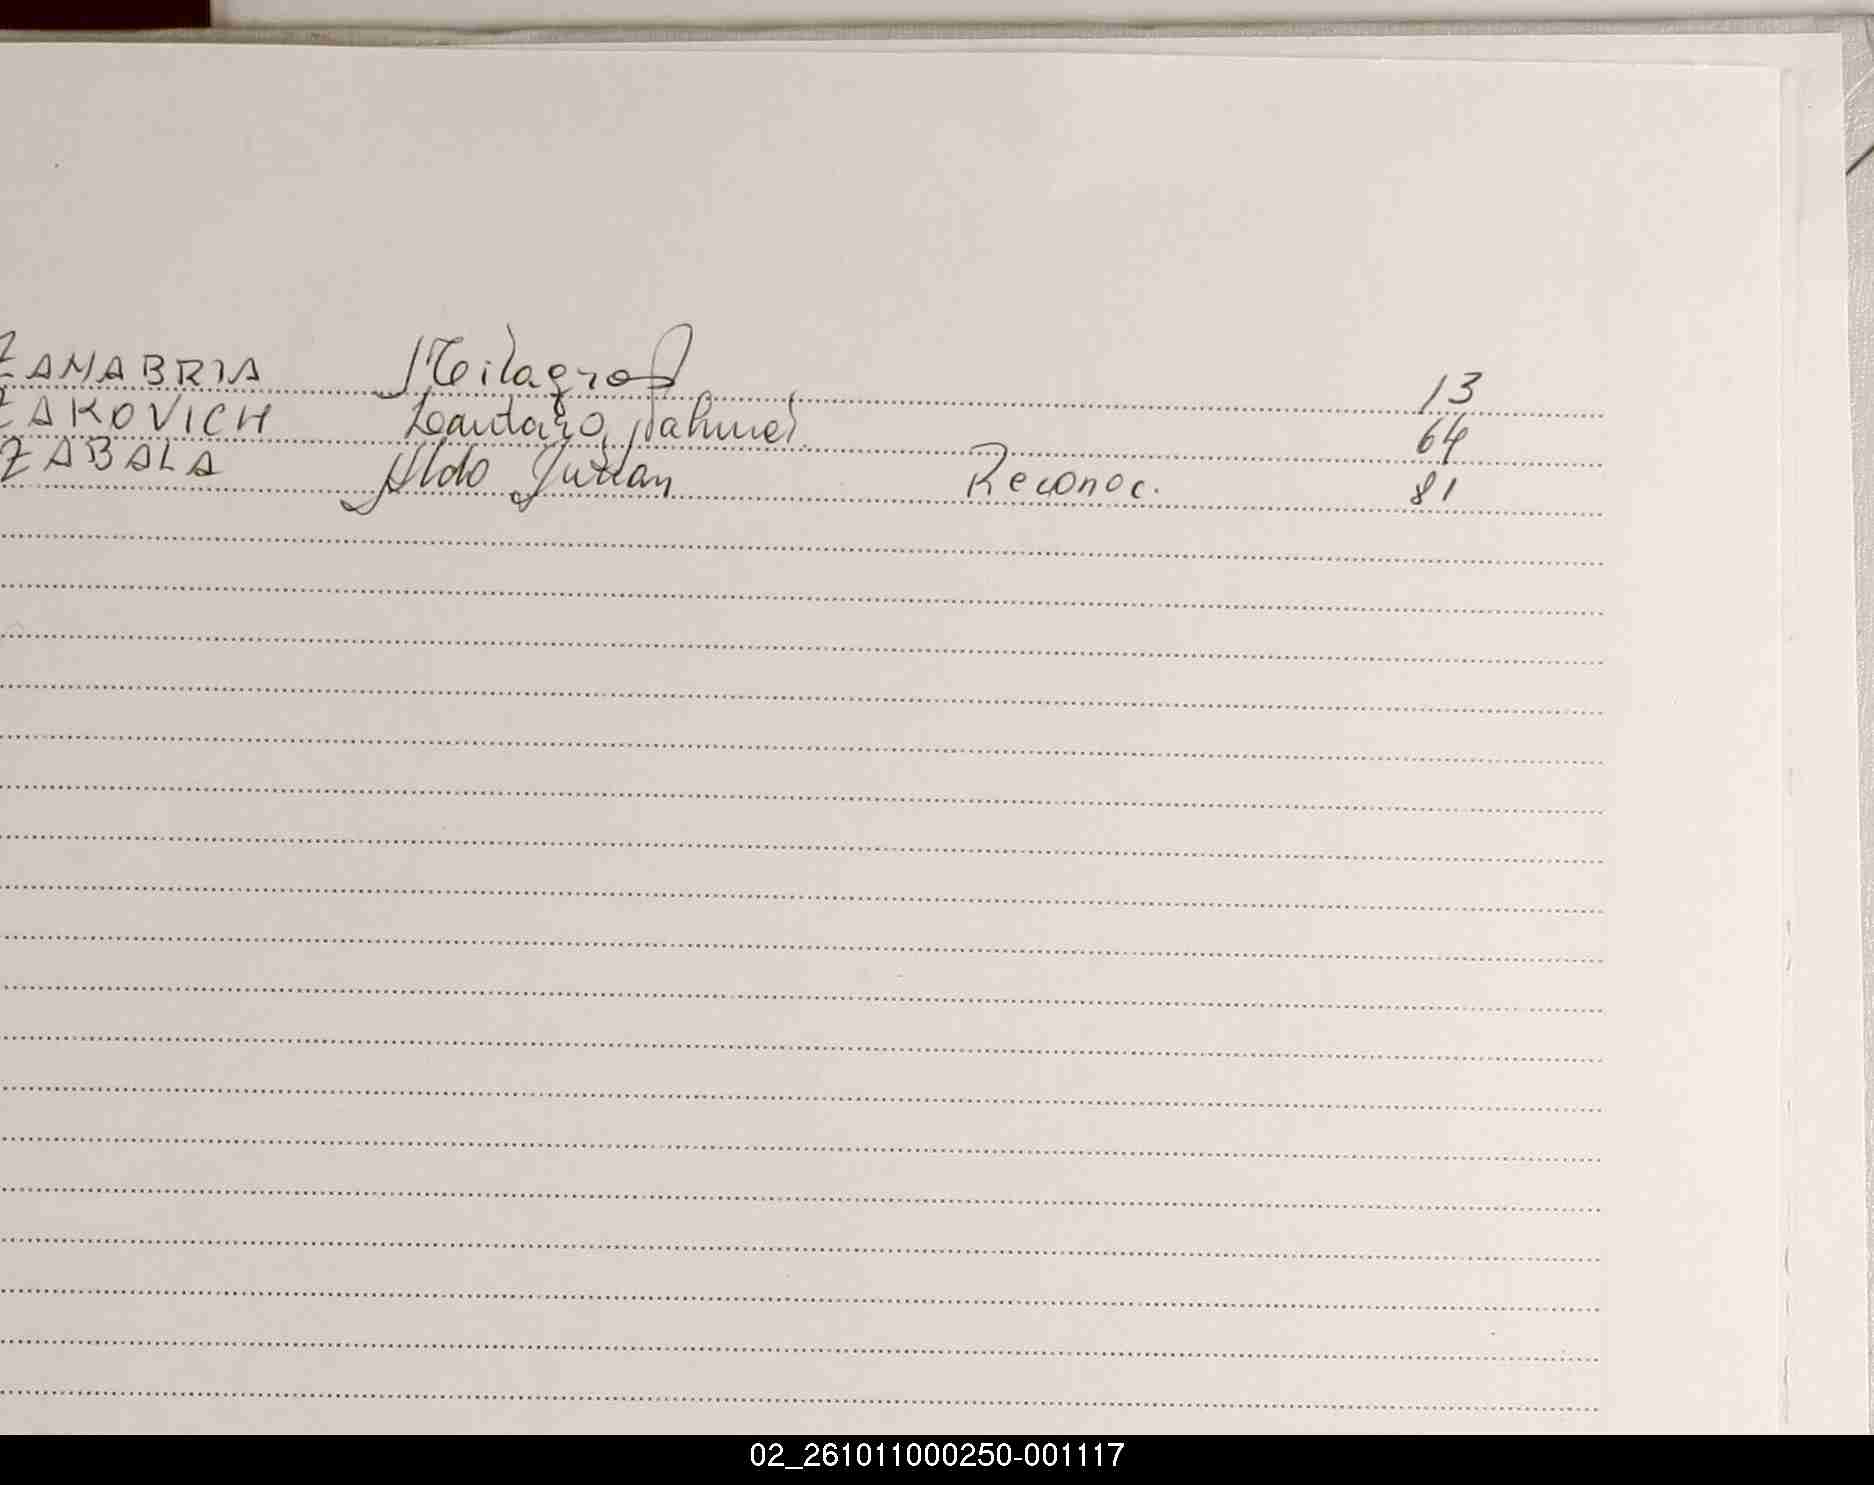 ZANABRIA Milagros 13
ZAKOVICH Lautaro Nahuel 64
ZABALA Aldo Julian Reconoc. 81
02_261011000250-001117